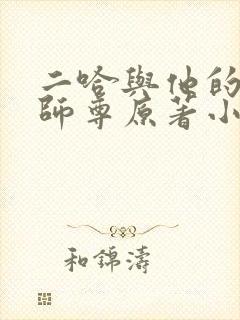 二哈與他的
師尊原著小
和錦濤